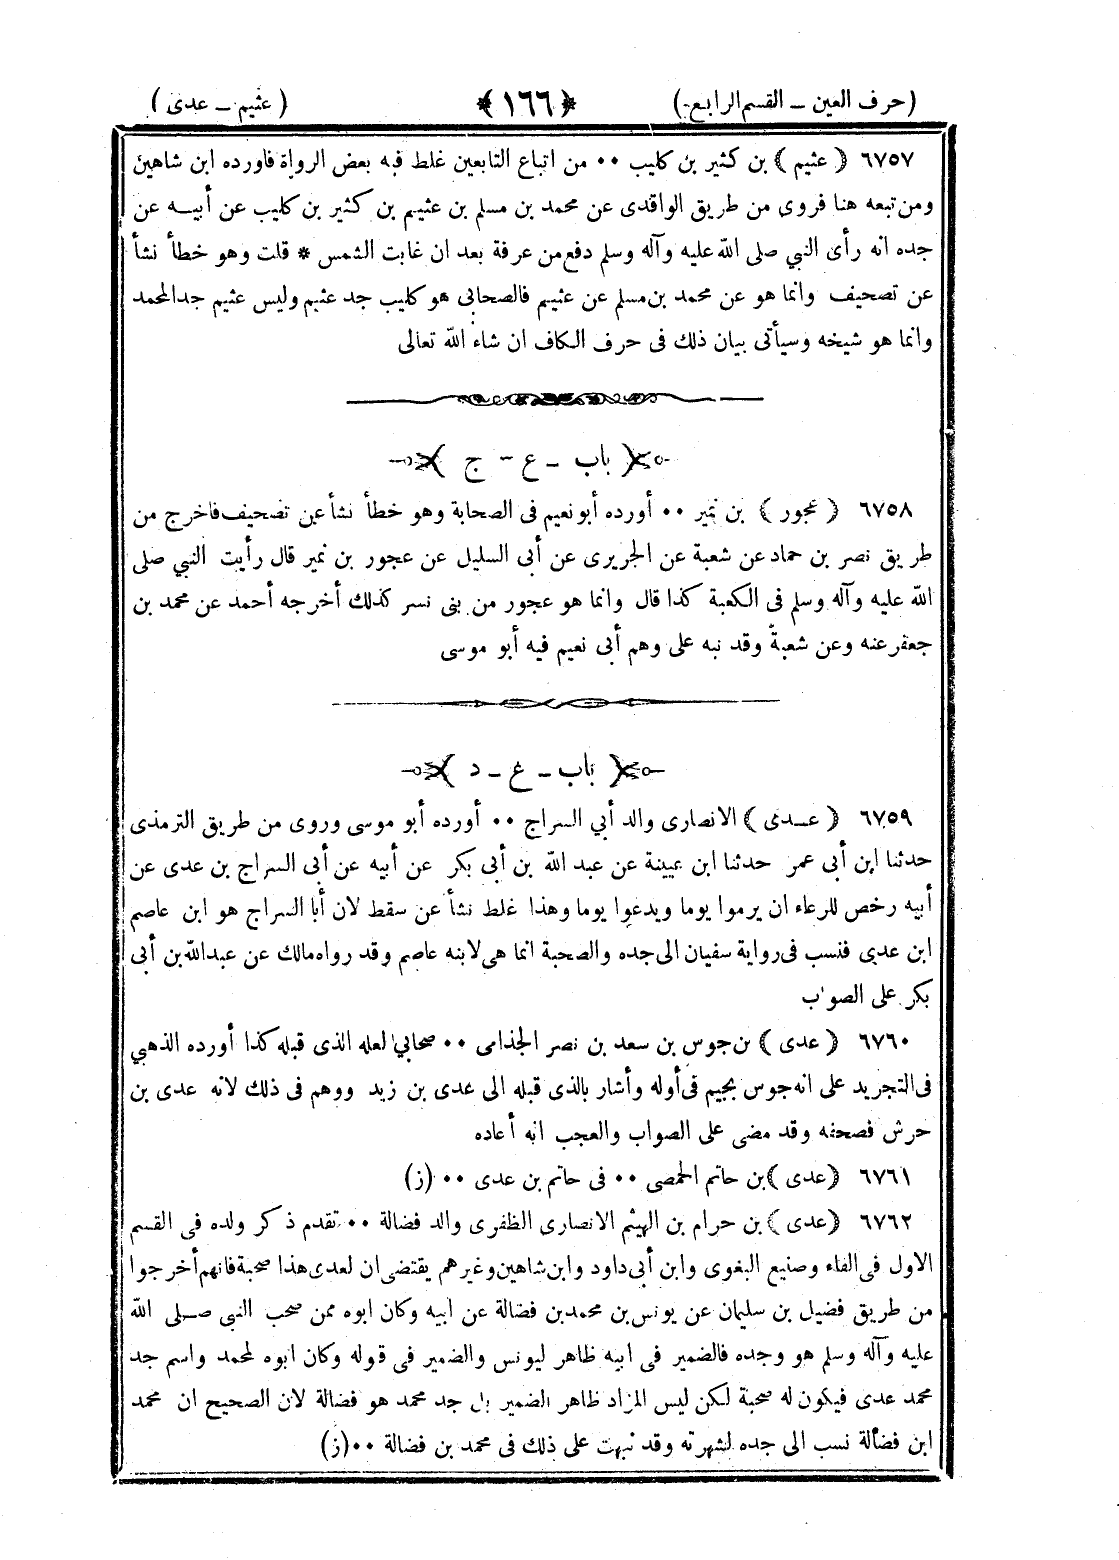 (حرف العين – القسم الرابع) ﴿١٦٦﴾ (عثيم – عدى)
٦٧٥٧ ﴿عثيم﴾ بن كثير بن كليب ٠٠ من اتباع التابعين غلط فيه بعض الرواة فاورده ابن شاهين
ومن تبعه هنا فروى من طريق الواقدى عن محمد بن مسلم بن عثيم بن كثير بن كليب عن أبيه عن
جده انه رأى النبي صلى الله عليه وآله وسلم دفع من عرفة بعد ان غابت الشمس * قلت وهو خطأ نشأ
عن تصحيف وانما هو عن محمد بن مسلم عن عثيم فالصحابى هو كليب جد عثيم وليس عثيم جد المحمد
وانما هو شيخه وسيأتى بيان ذلك فى حرف الكاف ان شاء الله تعالى
﴿باب – ع – ج﴾
٦٧٥٨ ﴿عجور﴾ بن نمير ٠٠ أورده أبو نعيم فى الصحابة وهو خطأ نشأ عن تصحيف فاخرج من
طريق نصر بن حماد عن شعبة عن الجريرى عن أبى السليل عن عجور بن نمير قال رأيت النبي صلى
الله عليه وآله وسلم فى الكعبة كذا قال وانما هو عجور من بنى نسر كذلك أخرجه أحمد عن محمد بن
جعفر عنه وعن شعبة وقد نبه على وهم أبى نعيم فيه أبو موسى
﴿باب – ع – د﴾
٦٧٥٩ ﴿عدى﴾ الانصارى والد أبي السراج ٠٠ أورده أبو موسى وروى من طريق الترمذى
حدثنا ابن أبى عمر حدثنا ابن عيينة عن عبد الله بن أبى بكر عن أبيه عن أبى السراج بن عدى عن
أبيه رخص للرعاء ان يرموا يوما ويدعوا يوما وهذا غلط نشأ عن سقط لان أبا السراج هو ابن عاصم
ابن عدى فنسب فى رواية سفيان الى جده والصحبة انما هى لابنه عاصم وقد رواه مالك عن عبدالله بن أبى
بكر على الصواب
٦٧٦٠ ﴿عدى﴾ بن جوس بن سعد بن نصر الجذامى ٠٠ صحابي لعله الذى قبله كذا أورده الذهبي
فى التجريد على انه جوس بجيم فى أوله وأشار بالذى قبله الى عدى بن زيد ووهم فى ذلك لانه عدى بن
حرش فصحفه وقد مضى على الصواب والعجب انه أعاده
٦٧٦١ ﴿عدى﴾ بن حاتم الحمصى ٠٠ فى حاتم بن عدى ٠٠ (ز)
٦٧٦٢ ﴿عدى﴾ بن حرام بن الهيثم الانصارى الظفرى والد فضالة ٠٠ تقدم ذكر ولده فى القسم
الاول فى الفاء وصنيع البغوى وابن أبى داود وابن شاهين وغيرهم يقتضى ان لعدى هذا صحبة فانهم أخرجوا
من طريق فضيل بن سليمان عن يونس بن محمد بن فضالة عن ابيه وكان ابوه ممن صحب النبي صلى الله
عليه وآله وسلم هو وجده فالضمير فى ابيه ظاهر ليونس والضمير فى قوله وكان ابوه لمحمد واسم جد
محمد عدى فيكون له صحبة لكن ليس المراد ظاهر الضمير بل جد محمد هو فضالة لان الصحيح ان محمد
ابن فضالة نسب الى جده لشهرته وقد نبهت على ذلك فى محمد بن فضالة ٠٠ (ز)